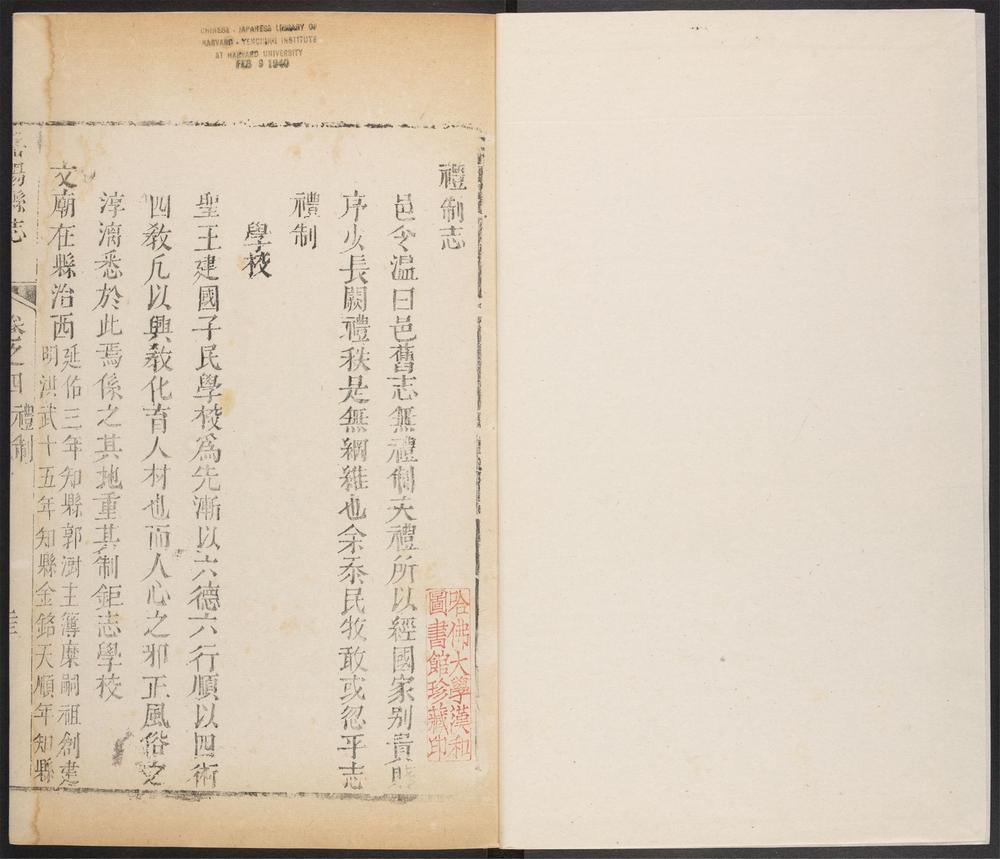 CHINESE - JAPANESE LIBRARY OF
HARVARD - YENCHING INSTITUTE
AT HARVARD UNIVERSITY
FEB 9 1940
禮制志
邑令溫曰邑舊志無禮制夫禮所以經國家别貴賤
序少長闕禮秩是無綱維也余忝民牧敢或忽乎志
禮制
學校
聖王建國子民學校爲先漸以六德六行順以四術
四教凡以興教化育人材也而人心之邪正風俗之
淳漓悉於此焉係之其地重其制鉅志學校
文廟在縣治西
延佑三年知縣郭澍主簿糜嗣祖創建
明洪武十五年知縣金銘天順年知縣
陽縣志
卷之四
禮制
哈佛大學漢和
圖書館珍藏印